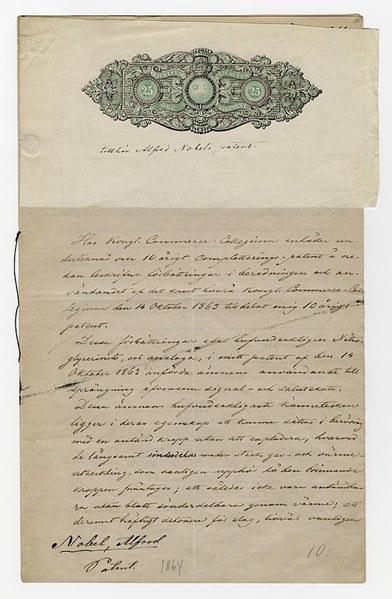 25 25
tillhör Alfred Nobels patent.
Hos Kongl. Commerce-Collegium anhåller un-
dertecknad om 10 årigt Completterings-patent å ne-
dan beskrifne förbättringar i beredningen och an-
vändandet af det krut hvarå Kongl. Commerce-Col-
legium den 14 Oktober 1863 tilldelat mig 10 årigt
patent.
Dessa förbättringar afse hufvudsakligen Nitro-
glycerinets, en , i mitt patent af den 14
Oktober 1863 anförda ämnens användande till
sprängning äfvensom signal- och salutskott.
Dessa ämnens hufvudsakligaste kännetecken
ligger i deras egenskap att kunna sättas i beröring
med en antänd kropp utan att explodera, hvarvid
de långsamt under stark gas- och värme-
utveckling, som vanligen upphör då den brinnande
kroppen ; att således icke vara antändba-
ra utan blott sönderdelbara genom värme; att
deremot häftigt detonera för slag, hvarvid vanligen
Nobel, Alfred
Patent. 1864
10.